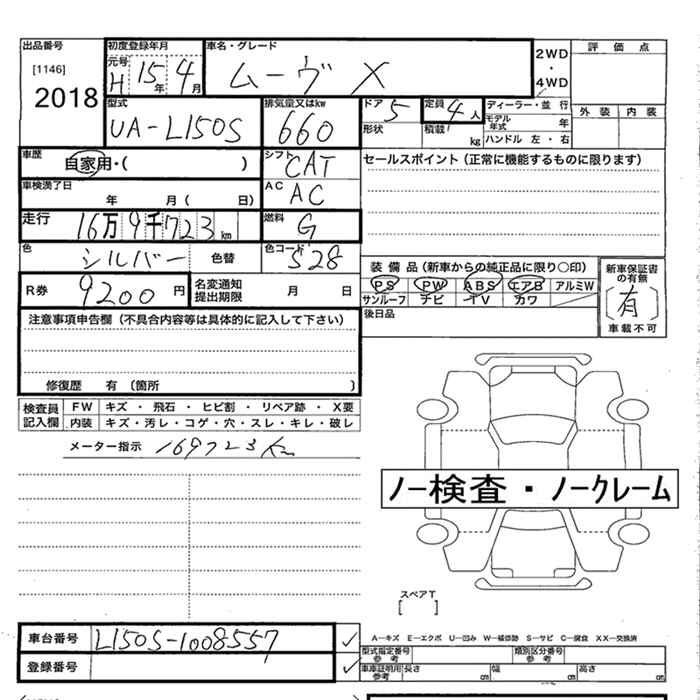 出品番号 初度登録年月 車名・グレード 2WD 評価点
[1146] 元号 H 15年 4月 ムーヴ X ・
2018 4WD
型式 排気量又はkw ドア 5 定員 4人 ディーラー・並行 外装 内装
UA-L150S 660 形状 積載 kg モデル年式 年
ハンドル 左・右
車歴 自家用・( ) シフト CAT セールスポイント (正常に機能するものに限ります)
車検満了日 年 月 ( 日) AC AC
走行 16万9千723km 燃料 G
色 シルバー 色替 色コード S28 装備品 (新車からの純正品に限り○印) 新車保証書の有無
R券 9200円 名変通知提出期限 月 日 PS PW ABS エアB アルミW [有]
サンルーフ ナビ TV カワ 車載不可
注意事項申告欄 (不具合内容等は具体的に記入して下さい) 後日品
修復歴 有 [箇所 ]
検査員記入欄 FW キズ ・ 飛石 ・ ヒビ割 ・ リペア跡 ・ X要
内装 キズ・汚レ・コゲ・穴・スレ・キレ・破レ
メーター指示 169723km
ノー検査・ノークレーム
スペアT
[ ]
車台番号 L150S-1008557 ✓ A―キズ E―エクボ U―凹み W―補修跡 S―サビ C―腐食 XX―交換済
型式指定番号 参考 類別区分番号 参考
登録番号 ✓ 車庫証明用参考 長さ cm 幅 cm 高さ cm